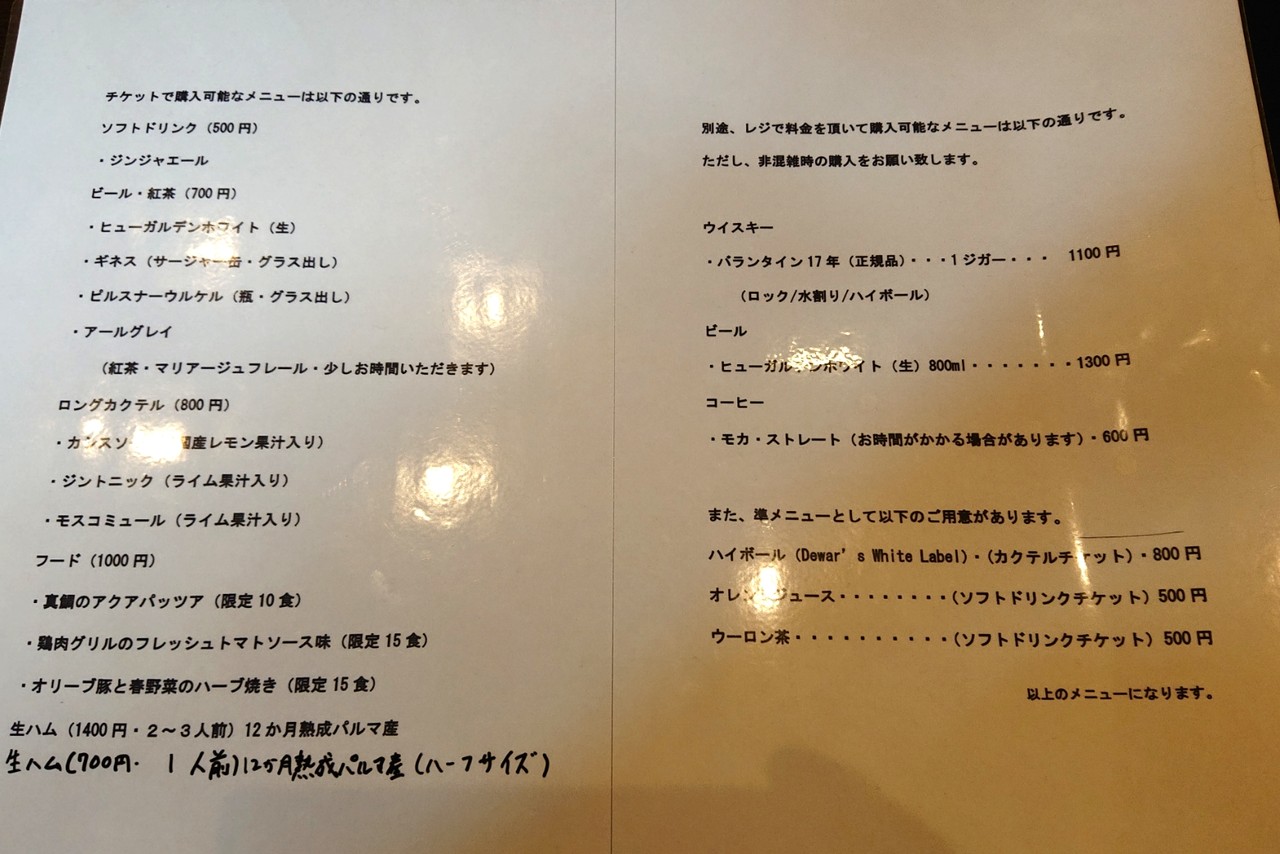 チケットで購入可能なメニューは以下の通りです。
ソフトドリンク（500円）
・ジンジャエール
ビール・紅茶（700円）
・ヒューガルデンホワイト（生）
・ギネス（サージャー缶・グラス出し）
・ピルスナーウルケル（瓶・グラス出し）
・アールグレイ
（紅茶・マリアージュフレール・少しお時間いただきます）
ロングカクテル（800円）
国産レモン果汁入り）
・ジントニック（ライム果汁入り）
・モスコミュール（ライム果汁入り）
フード（1000円）
・真鯛のアクアパッツア（限定10食）
・鶏肉グリルのフレッシュトマトソース味（限定15食）
・オリーブ豚と春野菜のハーブ焼き（限定15食）
生ハム（1400円・２～３人前）12か月熟成パルマ産
生ハム(700円・ 1人前)12ヶ月熟成パルマ産(ハーフサイズ)
別途、レジで料金を頂いて購入可能なメニューは以下の通りです。
ただし、非混雑時の購入をお願い致します。
ウイスキー
・バランタイン17年（正規品）・・・1ジガー・・・ 1100円
（ロック/水割り/ハイボール）
ビール
・ヒューガルデンホワイト（生）800ml・・・・・・・1300円
コーヒー
・モカ・ストレート（お時間がかかる場合があります）・600円
また、準メニューとして以下のご用意があります。
ハイボール（Dewar's White Label）・（カクテルチケット）・800円
オレンジジュース・・・・・・・・（ソフトドリンクチケット）500円
ウーロン茶・・・・・・・・・・（ソフトドリンクチケット）500円
以上のメニューになります。